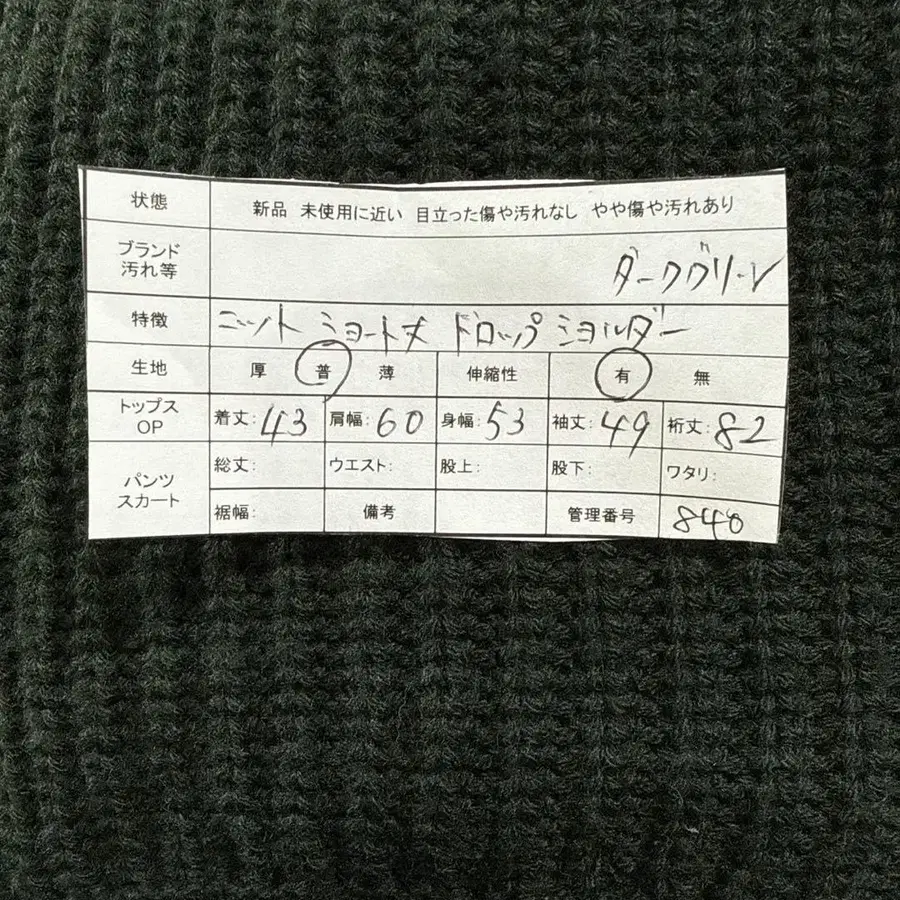 状態 新品 未使用に近い 目立った傷や汚れなし やや傷や汚れあり
ブランド
汚れ等 ダークグリーン
特徴 ニット ショート丈 ドロップショルダー
生地 厚 普 薄 伸縮性 有 無
トップス
OP 着丈:43 肩幅:60 身幅:53 袖丈:49 裄丈:82
パンツ
スカート 総丈: ウエスト: 股上: 股下: ワタリ:
裾幅: 備考 管理番号 840